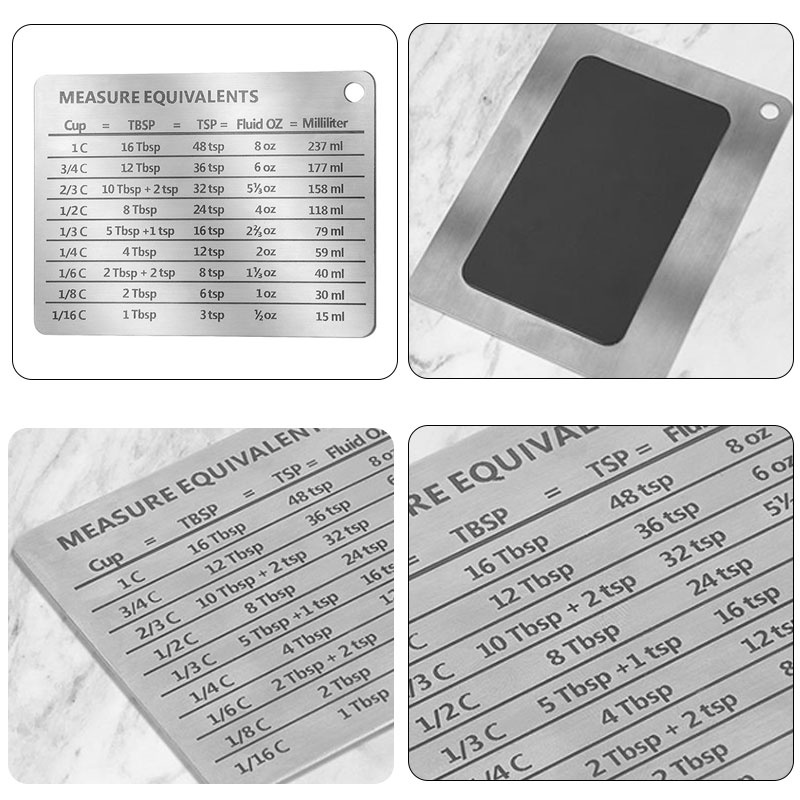 MEASURE EQUIVALENTS
Cup = TBSP = TSP = Fluid OZ = Milliliter
1 C 16 Tbsp 48 tsp 8 oz 237 ml
3/4 C 12 Tbsp 36 tsp 6 oz 177 ml
2/3 C 10 Tbsp + 2 tsp 32 tsp 5⅓ oz 158 ml
1/2 C 8 Tbsp 24 tsp 4 oz 118 ml
1/3 C 5 Tbsp +1 tsp 16 tsp 2⅔ oz 79 ml
1/4 C 4 Tbsp 12 tsp 2oz 59 ml
1/6 C 2 Tbsp + 2 tsp 8 tsp 1⅓ oz 40 ml
1/8 C 2 Tbsp 6 tsp 1 oz 30 ml
1/16 C 1 Tbsp 3 tsp ½ oz 15 ml
MEASURE EQUIVALENT
Cup = TBSP = TSP = Fluid OZ
1 C 16 Tbsp 48 tsp 8 oz
3/4 C 12 Tbsp 36 tsp 6
2/3 C 10 Tbsp + 2 tsp 32 tsp
1/2 C 8 Tbsp 24 tsp
1/3 C 5 Tbsp +1 tsp 16 ts
1/4 C 4 Tbsp 12
1/6 C 2 Tbsp + 2 tsp
1/8 C 2 Tbsp
1/16 C 1 Tbsp
RE EQUIVAL
= TBSP = TSP = Flu
16 Tbsp 48 tsp 8 oz
12 Tbsp 36 tsp 6 oz
C 10 Tbsp + 2 tsp 32 tsp 5⅓
/3 C 8 Tbsp 24 tsp
1/2 C 5 Tbsp +1 tsp 16 tsp
1/3 C 4 Tbsp 12 ts
1/4 C 2 Tbsp + 2 tsp 8
2 Tbsp